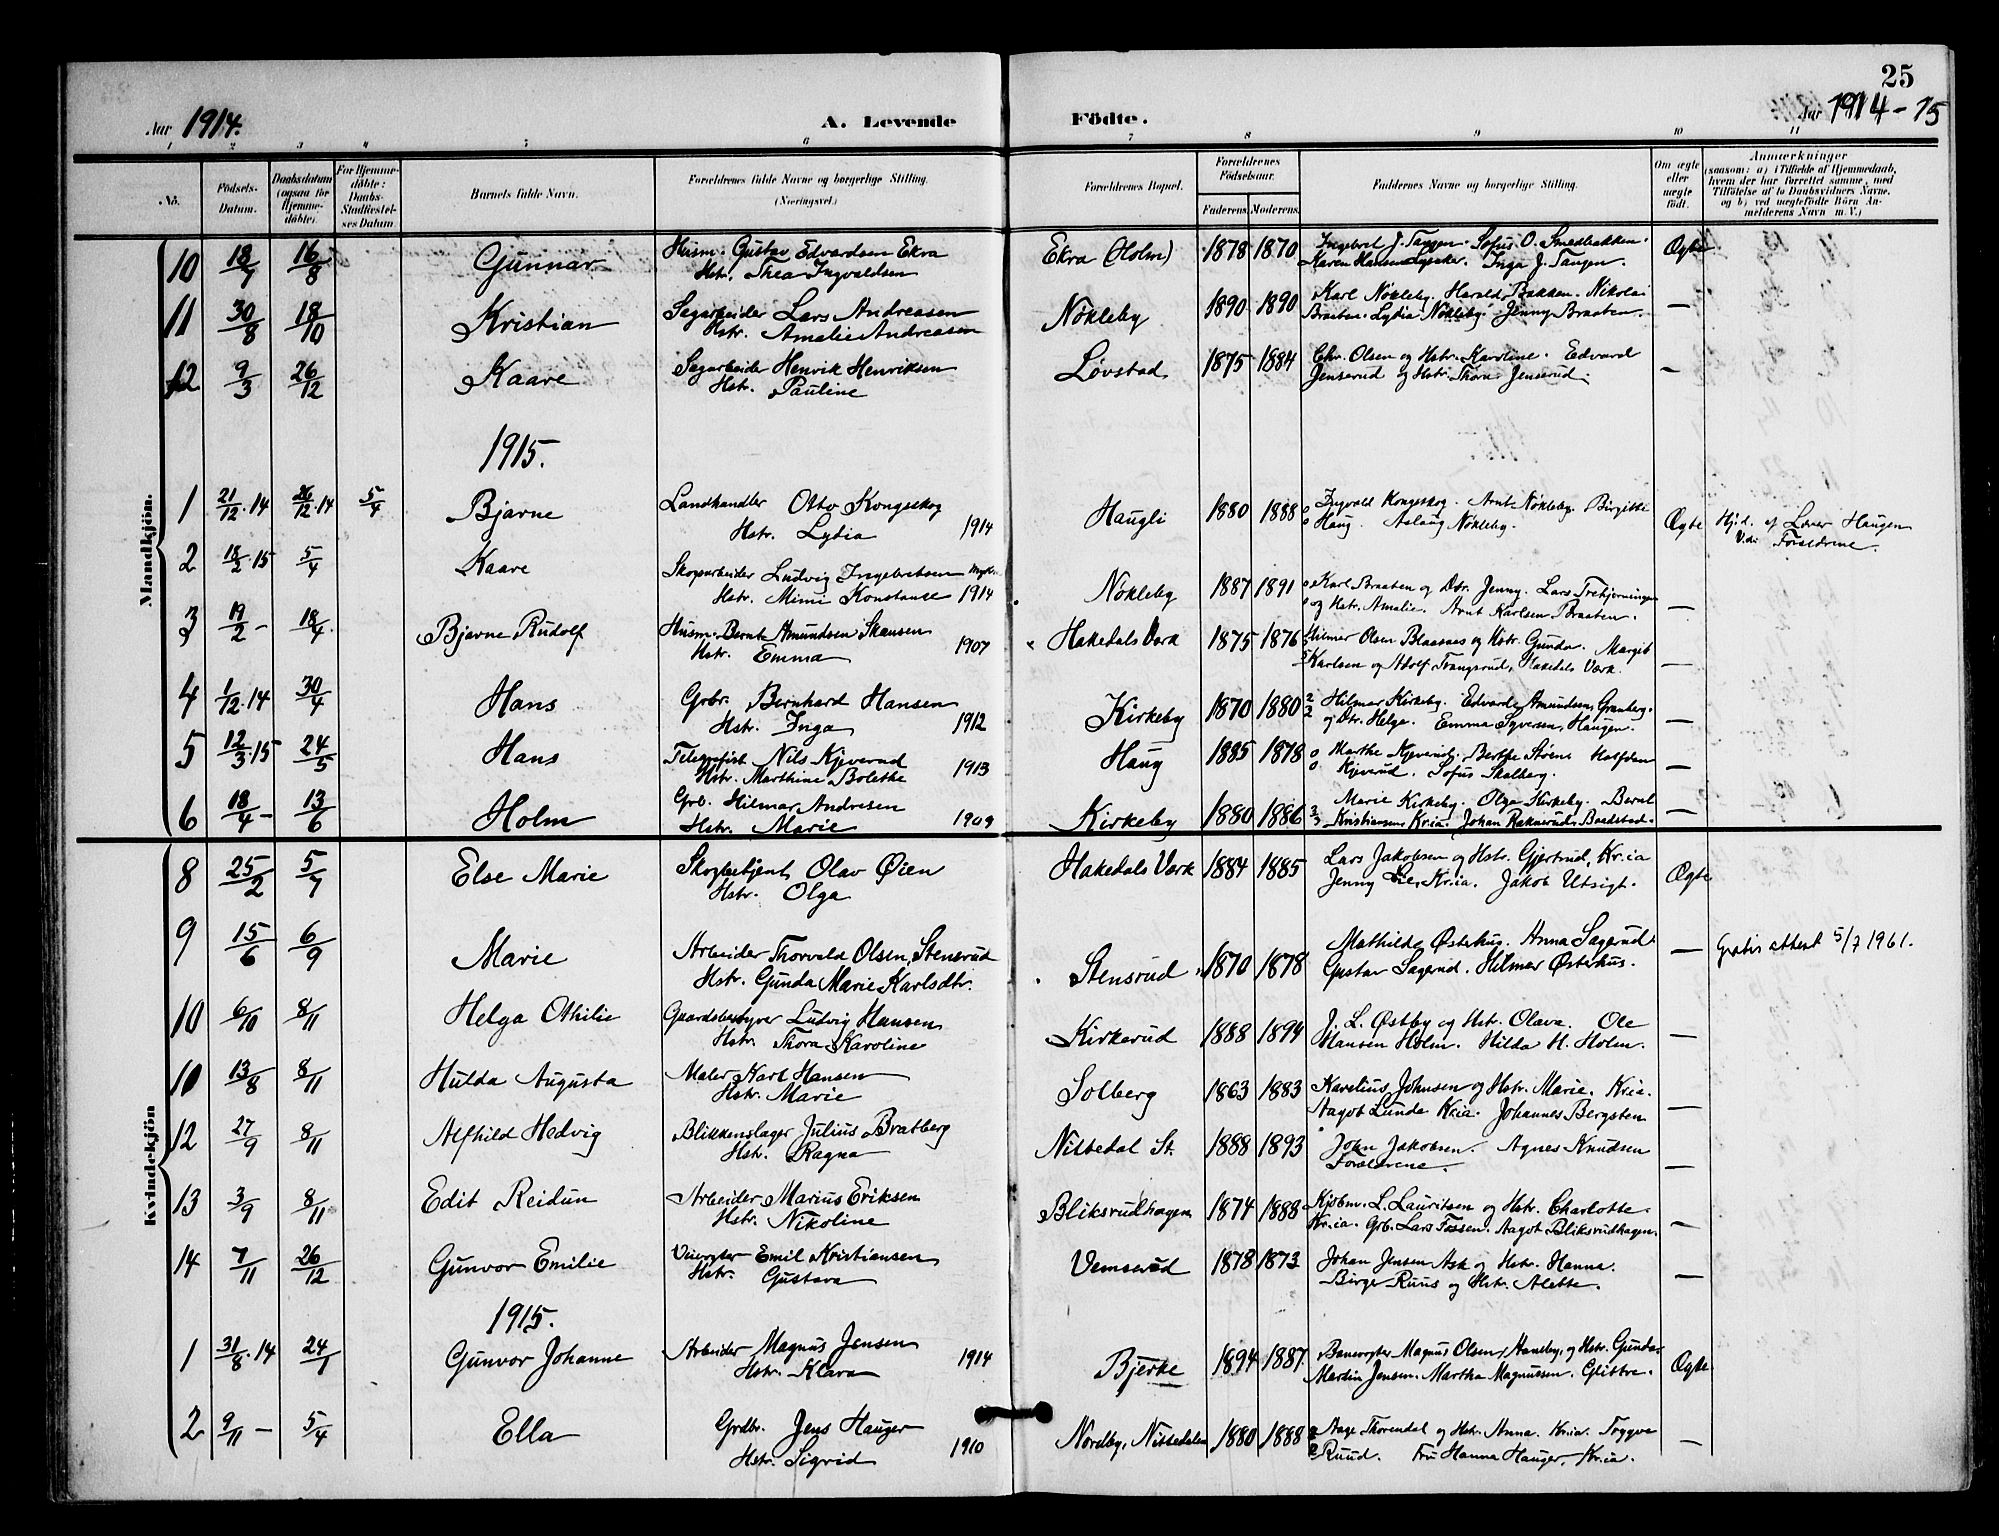 25
Aar 1914.
A. Levende
Födte.
Aar 1914-15
1 2 3 4 5 6 7 8 9 10 11
No.
Födsels-Datum.
Daabsdatum (ogsaa for Hjemme-döbte).
For Hjemme-döbte: Daabs-Stadfæstel-ses Datum
Barnets fulde Navn.
Forældrenes fulde Navne og borgerlige Stilling. (Næringsvei.)
Forældrenes Bopæl.
Forældrenes Födselsaar.
Faderens. Moderens.
Faddernes Navne og borgerlige Stilling.
Om ægte eller uægte födt.
Anmærkninger
(saasom: a) i Tilfælde af Hjemmedaab,
hvem der har forrettet samme, med
Tilföielse af to Daabsvidners Navne,
og b) ved uægtefödte Börn An-
melderens Navn m. V.)
Mandkjön.
10 18/7 16/8 Gunnar Husm. Gustav Edvardsen Ekra Ekra (Holm) 1878 1870 Ingebret J. Tangen. Sofus O. Smedbakken. Ægte
Hstr. Thea Ingvaldsen Karen Hansen Lysaker. Inga J. Tangen.
11 30/8 18/10 Kristian Sagarbeider Lars Andreasen Nökleby 1890 1890 Karl Nökleby. Harald Bakken. Nikolai —
Hstr. Amalie Andreasen Braaten. Lydia Nökleby. Jenny Braaten.
12 9/3 26/12 Kaare Sagarbeider Henrik Henriksen Løvstad 1875 1884 Chr. Olsen og Hstr. Karoline. Edvard —
Hstr. Pauline Jenserud og Hstr. Thora Jenserud.
1915.
1 21/12.14 26/12.14 5/4 Bjarne Landhandler Otto Kongsskog Haugli 1880 1888 Ingvald Kongsskog. Arnt Nökleby. Birgitte Ægte Hj.d. af Lærer Haugen
Hstr. Lydia 1914 Haug. Aslaug Nökleby. V.d: Forældrene.
2 18/2.15 5/4 Kaare Skogarbeider Ludvig Ingebretsen Nökleby 1887 1891 Karl Braaten og Dtr. Jenny. Lars Trehjørningen
Hstr. Mimi Konstanse 1914 og Hstr. Amalie. Arnt Karlsen Braaten. —
3 19/2 - 18/4. Bjarne Rudolf Husm. Bernt Amundsen Skansen Hakedals Værk 1875 1876 Hilmar Olsen Blaasaas og Hstr. Gunda. Margit
Hstr. Emma 1907 Karlsen og Adolf Trangsrud, Hakedals Værk. —
4 1/12.14 30/4 Hans Grbr. Bernhard Hansen Kirkeby 1870 1880 Hilmar Kirkeby. Edvarda Amundsen, Granberg.
Hstr. Inga 1912 og Dtr. Helga. Emma Syversen, Haugen. —
5 12/3.15 24/5 Hans Telegrafist Nils Kjeverud Haug 1885 1878 Marthe Kjeverud. Berthe Störens Halfdan
Hstr. Marthine Bolethe 1913 Kjeverud. Sofus Skolberg. —
6 18/4 - 13/6 Holm Grb. Hilmar Andresen Kirkeby 1880 1886 Marie Kirkeby. Olga Kirkeby. Bernt —
Hstr. Marie 1909 Kristiansen, Kr.ia. Johan Raknerud, Baadstad.
Kvindekjön
8 25/2 5/7 Else Marie Skogbetjent Olav Øien Hakedals Værk 1884 1885 Lars Jakobsen og Hstr. Gjertrud, Kr.ia Ægte
Hstr. Olga Jenny Lie, Kr.ia. Jakob Utsigt.
9 15/6 6/9 Marie Arbeider Thorvald Olsen, Stensrud Stensrud 1870 1878 Mathilde Østerhug. Anna Sagerud. — Gratis attest 5/7 1961.
Hstr. Gunda Marie Karlsdtr. Gustav Sagerud. Hilmar Østerhus.
10 6/10 8/11 Helga Othilie Gaardsbestyrer Ludvig Hansen Kirkerud 1888 1894 J. L. Østby og Hstr. Olava. Ole —
Hstr. Thora Karoline Hansen Holm. Hilda H. Holm.
10 13/8 8/11 Hulda Augusta Maler Karl Hansen Solberg 1863 1883 Karelius Johnsen og Hstr. Marie. Kr.ia.
Hstr. Marie Aagot Lunde Kr.ia. Johannes Bergsten —
12 27/9 8/11 Alfhild Hedvig Blikkenslager Julius Bratberg Nittedal St. 1888 1893 John Jakobsen. Agnes Knudsen
Hstr. Ragna Forældrene. —
13 3/9 8/11 Edit Reidun Arbeider Marius Eriksen Bliksrudhagen 1874 1888 Kjøbm. L. Lauritsen og Hstr. Charlotte.
Hstr. Nikoline Kr.ia. Grb. Lars Tøssen. Aagot Bliksrudhagen. —
14 7/11 26/12 Gunvor Emilie Veivogter Emil Kristiansen Vemserud 1878 1873 Johan Jensen Ask og Hstr. Hanna.
Hstr. Gustava Birger Ruus og Hstr. Alette. —
1915.
1 31/8.14 24/1 Gunvor Johanne Arbeider Magnus Jensen 1914 Bjerke 1894 1887. Banevogter Magnus Olsen, Haneby, og Hstr. Gunda Ægte
Hstr. Klara Martin Jensen. Martha Magnussen. Glittre.
2 9/11 - 5/4 Ella Grdbr. Jens Hauger Nordby, Nittedalen 1880 1888 Aage Thorendal og Hstr. Anna. Kr.ia. Trygve —
Hstr. Sigrid 1910 Ruud. Fru Hanna Hauger, Kr.ia.